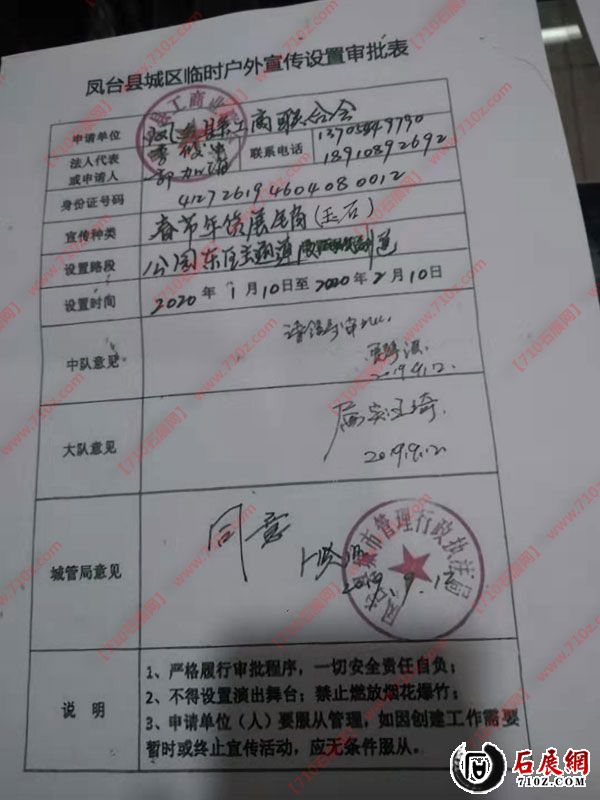 凤台县城区临时户外宣传设置审批表
申请单位 县工商联合会
法人代表 或申请人 联系电话 13705549790 18910892692
身份证号码 412726194604080012
宣传种类 春节年货展销(玉石)
设置路段 公园东
设置时间 2020年1月10日至2020年2月10日
中队意见 请领导审批.
2019.9.12
大队意见 属实
2019.9.12
城管局意见 同意
2019.9.12
城市管理行政执法局
说 明
1、严格履行审批程序，一切安全责任自负；
2、不得设置演出舞台；禁止燃放烟花爆竹；
3、申请单位（人）要服从管理，如因创建工作需要
暂时或终止宣传活动，应无条件服从。
【710石展网】www.710z.com
石展網
710Z.COM